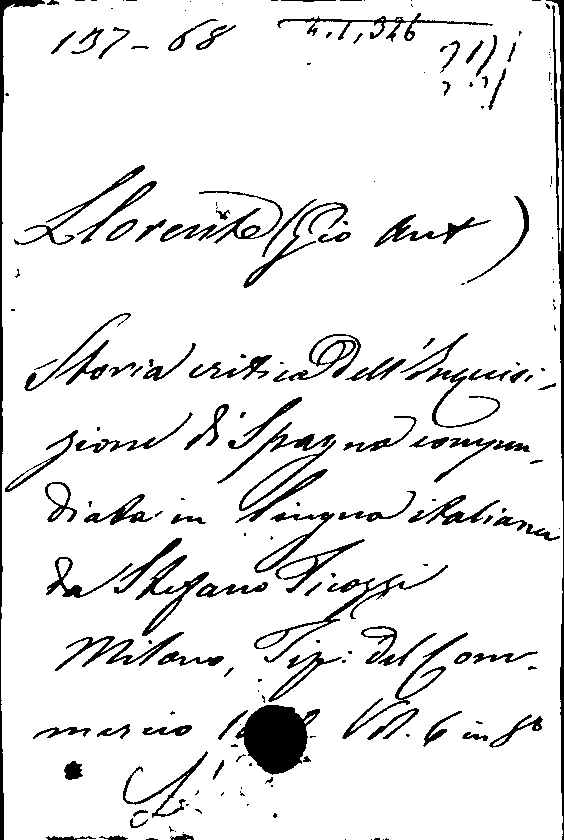 137-68
2.1,326
Llorente (Gio Ant)
Storia critica dell'Inquisi-
zione di Spagna compen-
diata in lingua italiana
da Stefano Ticozzi
Milano, Tip: del Com-
mercio Vol. 6 in 8°